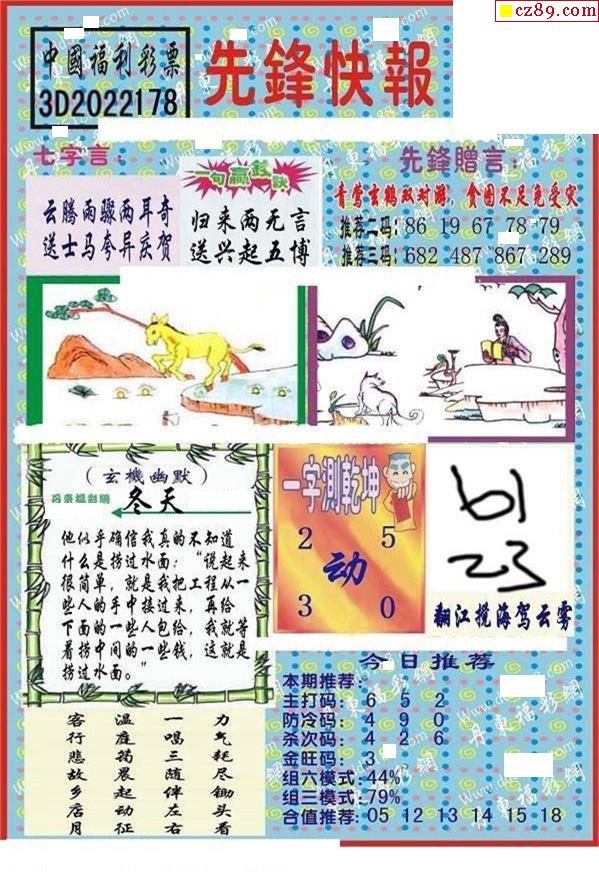 cz89.com
中國福利彩票
3D2022178
先鋒快報
七字言：
云腾雨骤两耳奇
送士马夸异庆贺
一句赢钱诀
归来两无言
送兴起五博
先鋒贈言：
青莺玄鹤双对游，食困不足免受灾
推荐二码：86 19 67 78 79
推荐三码：682 487 867 289
（玄機幽默）
丹東福彩網
冬天
他似乎确信我真的不知道
什么是捞过水面：“说起来
很简单，就是我把工程从一
些人的手中接过来，再给
下面的一些人包给，我就等
着捞中间的一些钱，这就是
捞过水面。”
一字测乾坤
2 5
动
3 0
61
23
翻江揽海驾云雾
客行悲故乡店月
温庭筠晨起动征
一唱三随伴左右
力气耗尽锄头看
今日推荐
本期推荐：
主打码：6 5 2
防冷码：4 9 0
杀次码：4 2 6
金旺码：3
组六模式：44%
组三模式：79%
合值推荐：05 12 13 14 15 18